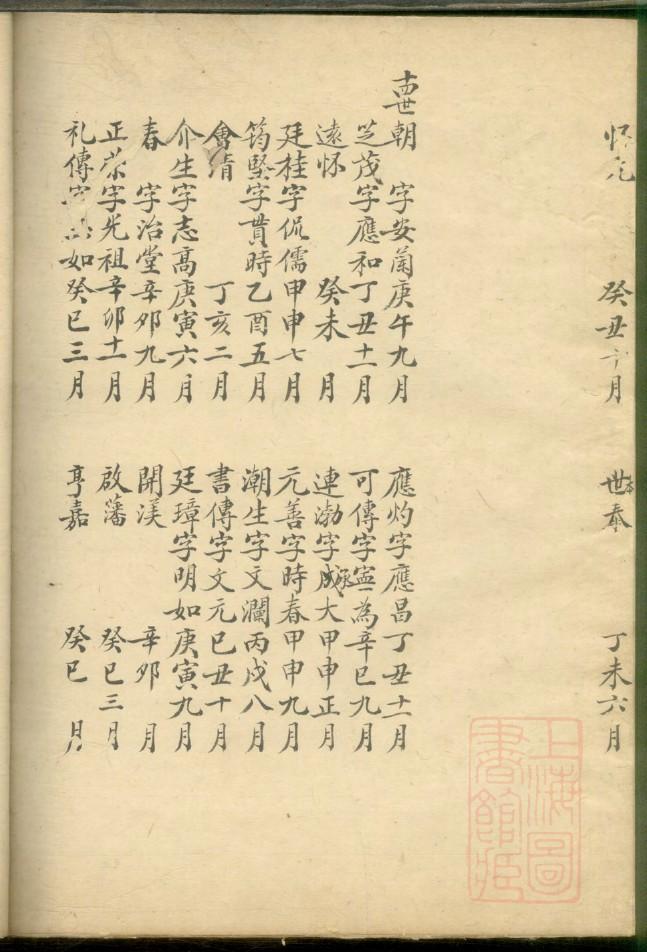 懷　癸丑十月
世奉　丁未六月
朝　字安蘭庚午九月
應灼字應昌丁丑十一月
芝茂字應和丁丑十一月
可傳字寧為辛巳九月
遠懷　癸未　月
連渤字成大甲申正月
廷桂字侃儒甲申七月
元善字時春甲申九月
筠堅字貫時乙酉五月
潮生字文瀾丙戌八月
會清　丁亥二月
書傳字文元己丑十月
介生字志高庚寅六月
廷璋字明如庚寅九月
春　字治堂辛卯九月
開渼　辛卯　月
正榮字光祖辛卯十一月
啟藩　癸巳三月
礼傳字　如癸巳三月
亨嘉　癸巳　月
上海圖書館藏